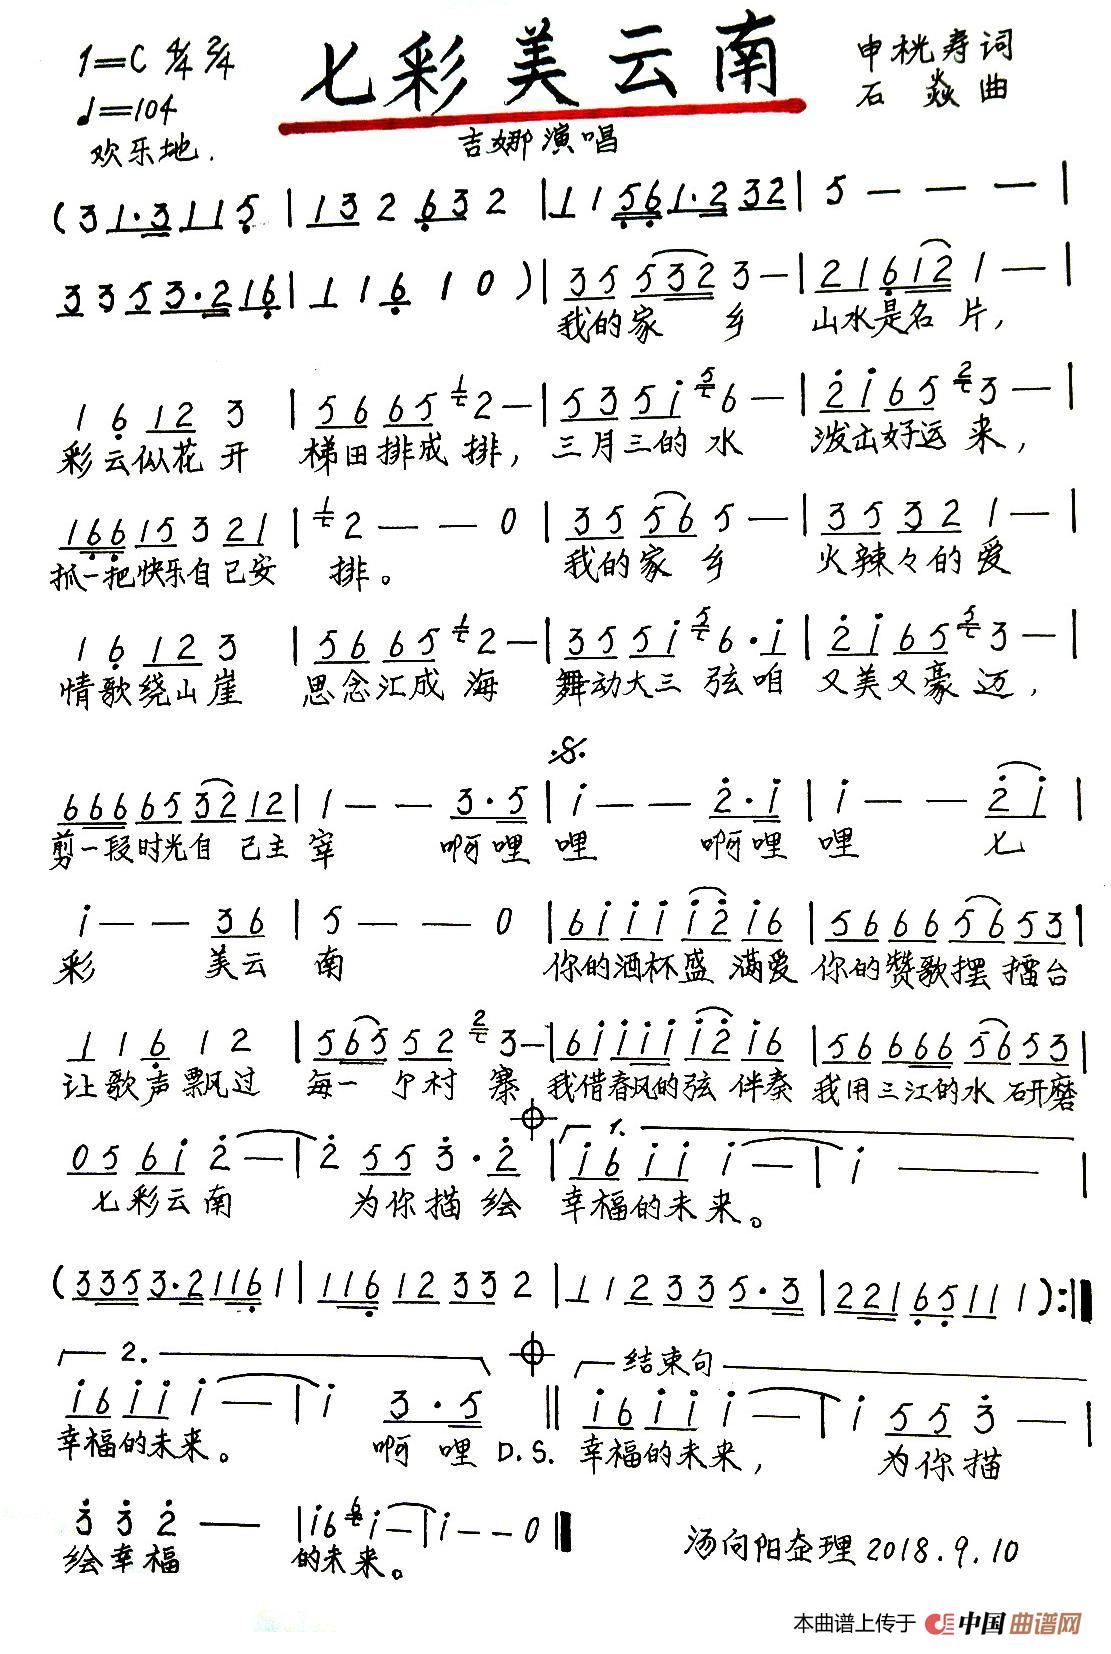 1=C 4/4 2/4
♩=104
欢乐地.
七彩美云南
申桄寿词
石焱曲
吉娜演唱
(3 1·3 1 1 5 | 1 3 2 6 3 2 | 1 1 5 6 1·2 3 2 | 5 — — — |
3 3 5 3·2 1 6 | 1 1 6 1 0 ) | 3 5 5 3 2 3 — | 2 1 6 1 2 1 — |
我的家乡 山水是名片,
1 6 1 2 3 | 5 6 6 5 1 2 — | 5 3 5 i 5 6 — | 2 i 6 5 2 3 — |
彩云似花开 梯田排成排, 三月三的水 泼出好运来,
1 6 6 1 5 3 2 1 | 1 2 — — 0 | 3 5 5 6 5 — | 3 5 3 2 1 — |
抓一把快乐自己安排。 我的家乡 火辣々的爱
1 6 1 2 3 | 5 6 6 5 1 2 — | 3 5 5 i 5 6·i | 2 i 6 5 5 3 — |
情歌绕山崖 思念汇成海 舞动大三弦咱 又美又豪迈,
6 6 6 6 5 3 2 1 2 | 1 — — 3·5 | i — — 2·i | i — — 2 i |
剪一段时光自己主宰 啊哩哩 啊哩哩 七
i — — 3 6 | 5 — — 0 | 6 i i i i 2 i 6 | 5 6 6 6 5 6 5 3 |
彩 美云南 你的酒杯盛满爱 你的赞歌摆擂台
1 1 6 1 2 | 5 6 5 5 2 2 3 — | 6 i i i i i 2 i 6 | 5 6 6 6 6 5 6 5 3 |
让歌声飘过 每一个村寨 我借春风的弦伴奏 我用三江的水研磨
1.
0 5 6 i 2 — | 2 5 5 3·2 | i 6 i i i — | i — |
七彩云南 为你描绘 幸福的未来。
(3 3 5 3·2 1 1 6 1 | 1 1 6 1 2 3 3 2 | 1 1 2 3 3 5·3 | 2 2 1 6 5 1 1 1 ) :‖
2. 结束句
i 6 i i i — | i 3·5 ‖ i 6 i i i — | i 5 5 3 — |
幸福的未来。 啊哩 D.S. 幸福的未来, 为你描
3 3 2 — | i 6 6 i — | i — — 0 ‖
绘幸福 的未来。
汤向阳整理2018.9.10
本曲谱上传于 中国曲谱网